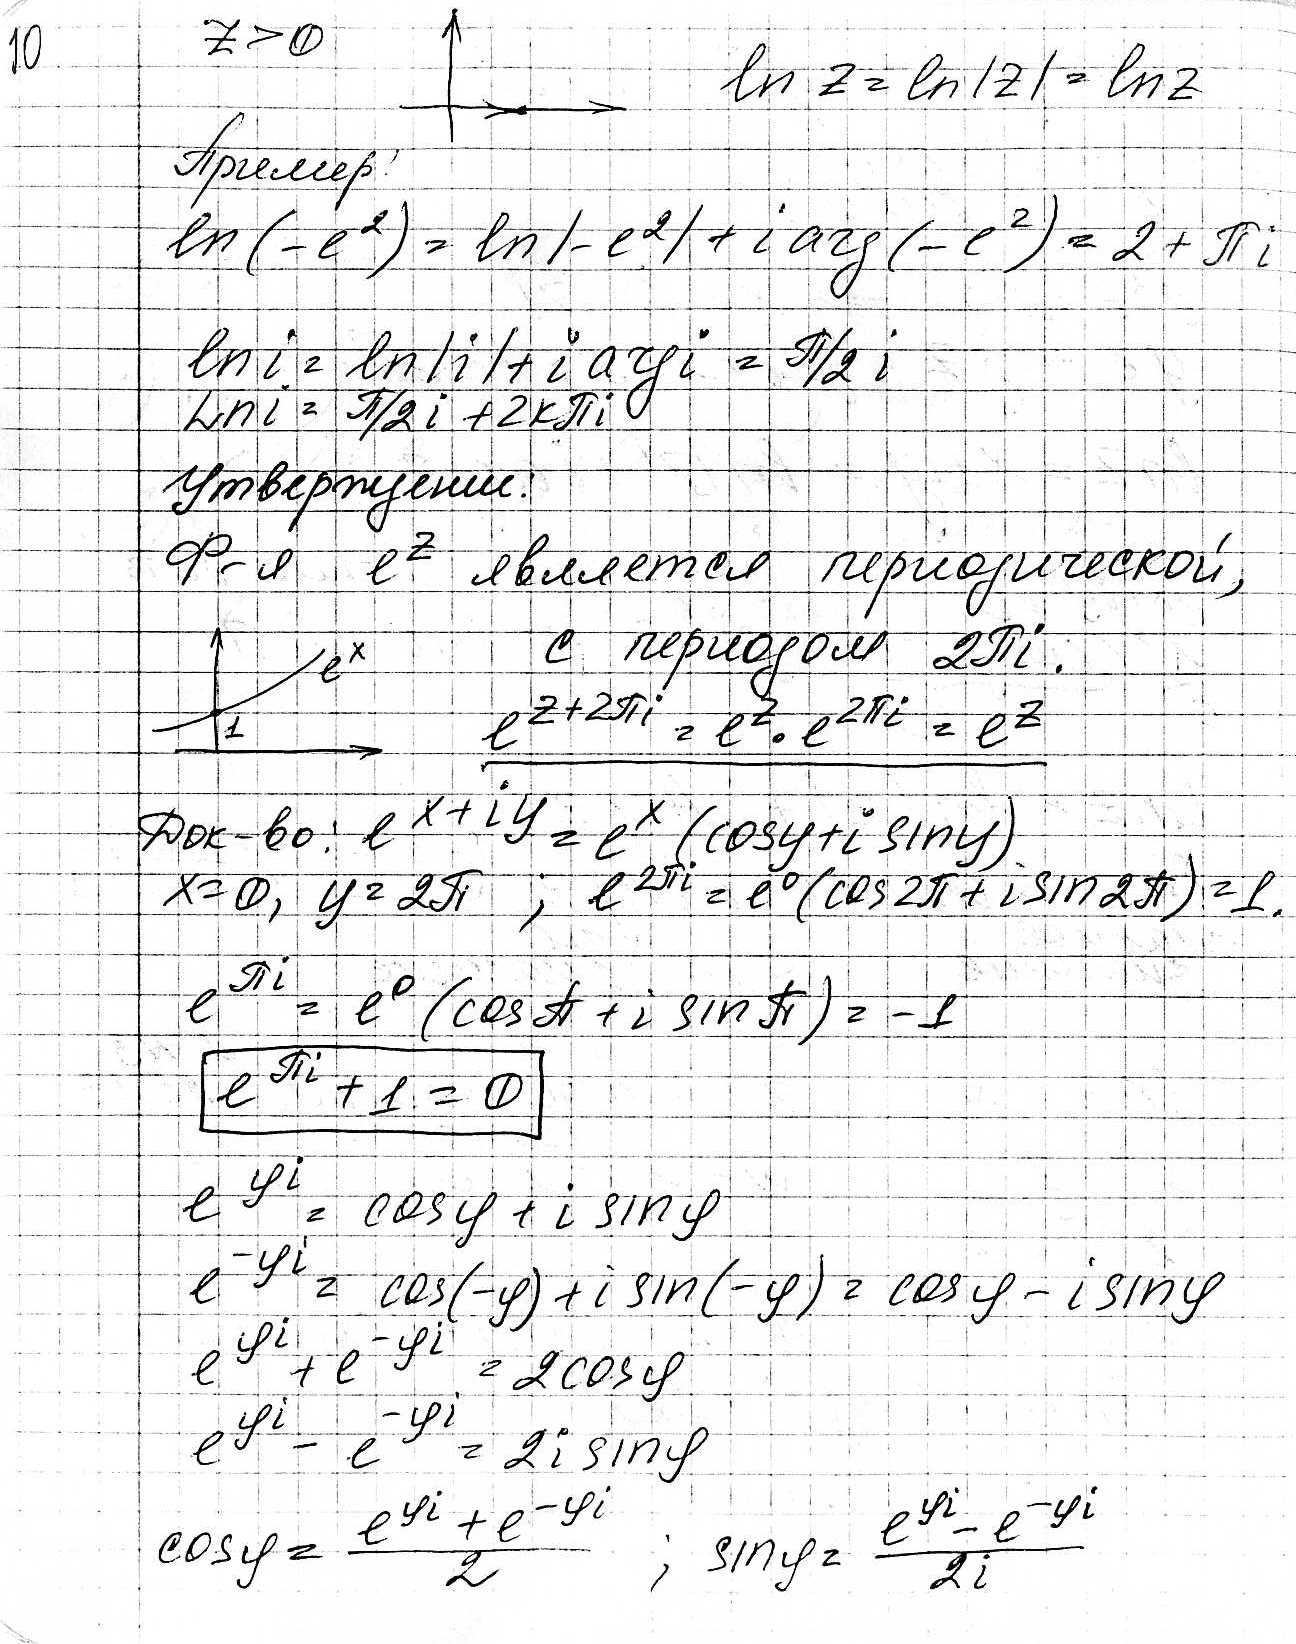 10
z > 0
ln z = ln|z| = ln z
Пример:
ln(-e²) = ln|-e²| + i arg(-e²) = 2 + πi
ln i = ln|i| + i arg i = π/2 i
Ln i = π/2 i + 2kπi
Утверждение:
Ф-я e^z является периодической,
с периодом 2πi.
e^x
1
e^{z+2πi} = e^z · e^{2πi} = e^z
Док-во: e^{x+iy} = e^x (cosy + i siny)
x=0, y=2π ; e^{2πi} = e^0 (cos2π + i sin2π) = 1.
e^{πi} = e^0 (cosπ + i sinπ) = -1
e^{πi} + 1 = 0
e^{yi} = cosy + i siny
e^{-yi} = cos(-y) + i sin(-y) = cosy - i siny
e^{yi} + e^{-yi} = 2cosy
e^{yi} - e^{-yi} = 2i siny
cosy = (e^{yi} + e^{-yi})/2 ; siny = (e^{yi} - e^{-yi})/2i